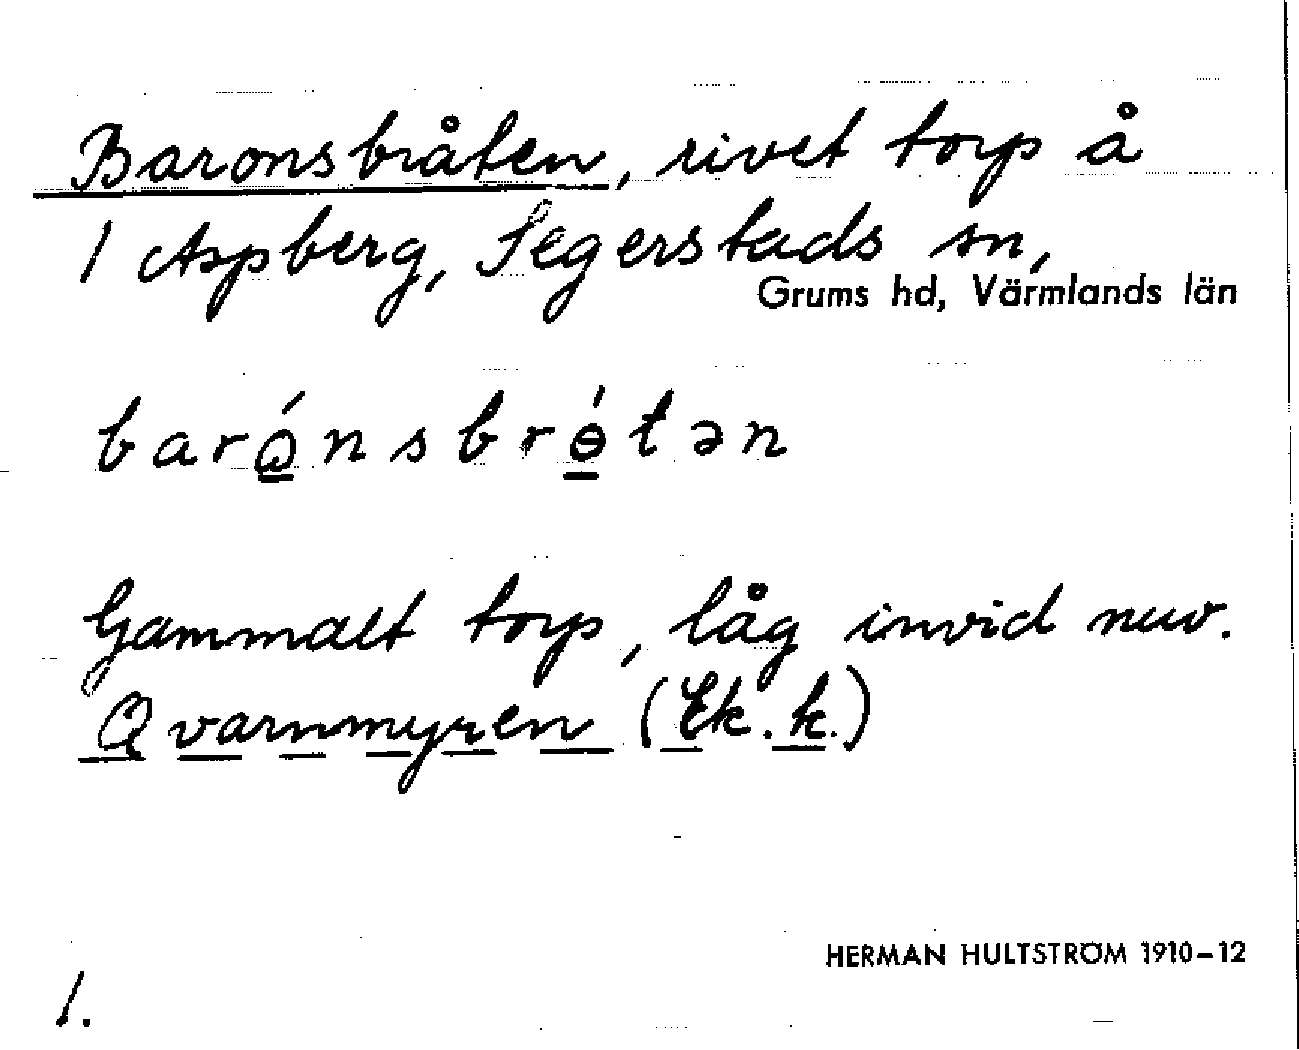 Baronsbråten, rivet torp å
1 Aspberg, Segerstads sn,
Grums hd, Värmlands län
barǫ́nsbrɵ́tən
Gammalt torp, låg invid nuv.
Qvarnmyren (Ek. k.)
HERMAN HULTSTRÖM 1910–12
1.